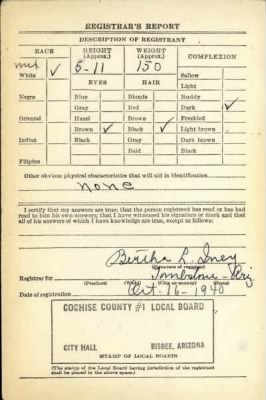 REGISTRAR'S REPORT
DESCRIPTION OF REGISTRANT
RACE HEIGHT (Approx.) WEIGHT (Approx.) COMPLEXION
Mex 5-11 150
White ✓ Sallow
EYES HAIR Light
Negro Blue Blonde Ruddy
Gray Red Dark ✓
Oriental Hazel Brown Freckled
Brown ✓ Black ✓ Light brown
Indian Black Gray Dark brown
Bald Black
Filipino
Other obvious physical characteristics that will aid in identification
None
I certify that my answers are true; that the person registered has read or has had
read to him his own answers; that I have witnessed his signature or mark and that
all of his answers of which I have knowledge are true, except as follows:
Bertha L.
(Signature of registrar)
Registrar for Tombstone Ariz
(Precinct) (Ward) (City or county) (State)
Date of registration Oct. 16-1940
COCHISE COUNTY #1 LOCAL BOARD
CITY HALL BISBEE, ARIZONA
(STAMP OF LOCAL BOARD)
(The stamp of the Local Board having jurisdiction of the registrant
shall be placed in the above space.)